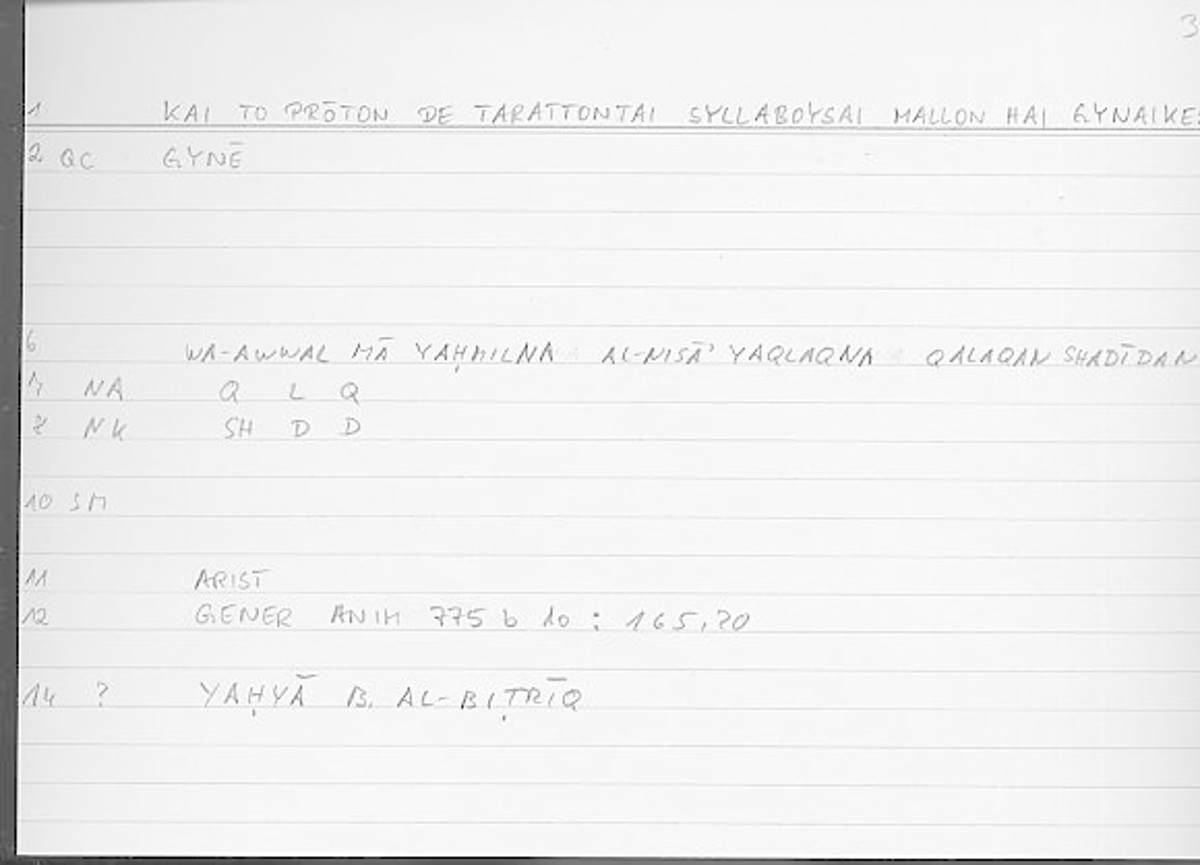 3
1 KAI TO PRŌTON DE TARATTONTAI SYLLABOYSAI MALLON HAI GYNAIKES
2 QC GYNĒ
6 WA-AWWAL MĀ YAḤMILNA AL-NISĀʾ YAQLAQNA QALAQAN SHADĪDAN
7 NA Q L Q
8 NK SH D D
10 SM
11 ARIST
12 GENER ANIM 775 b 10 : 165,20
14 ? YAḤYĀ B. AL-BIṬRĪQ